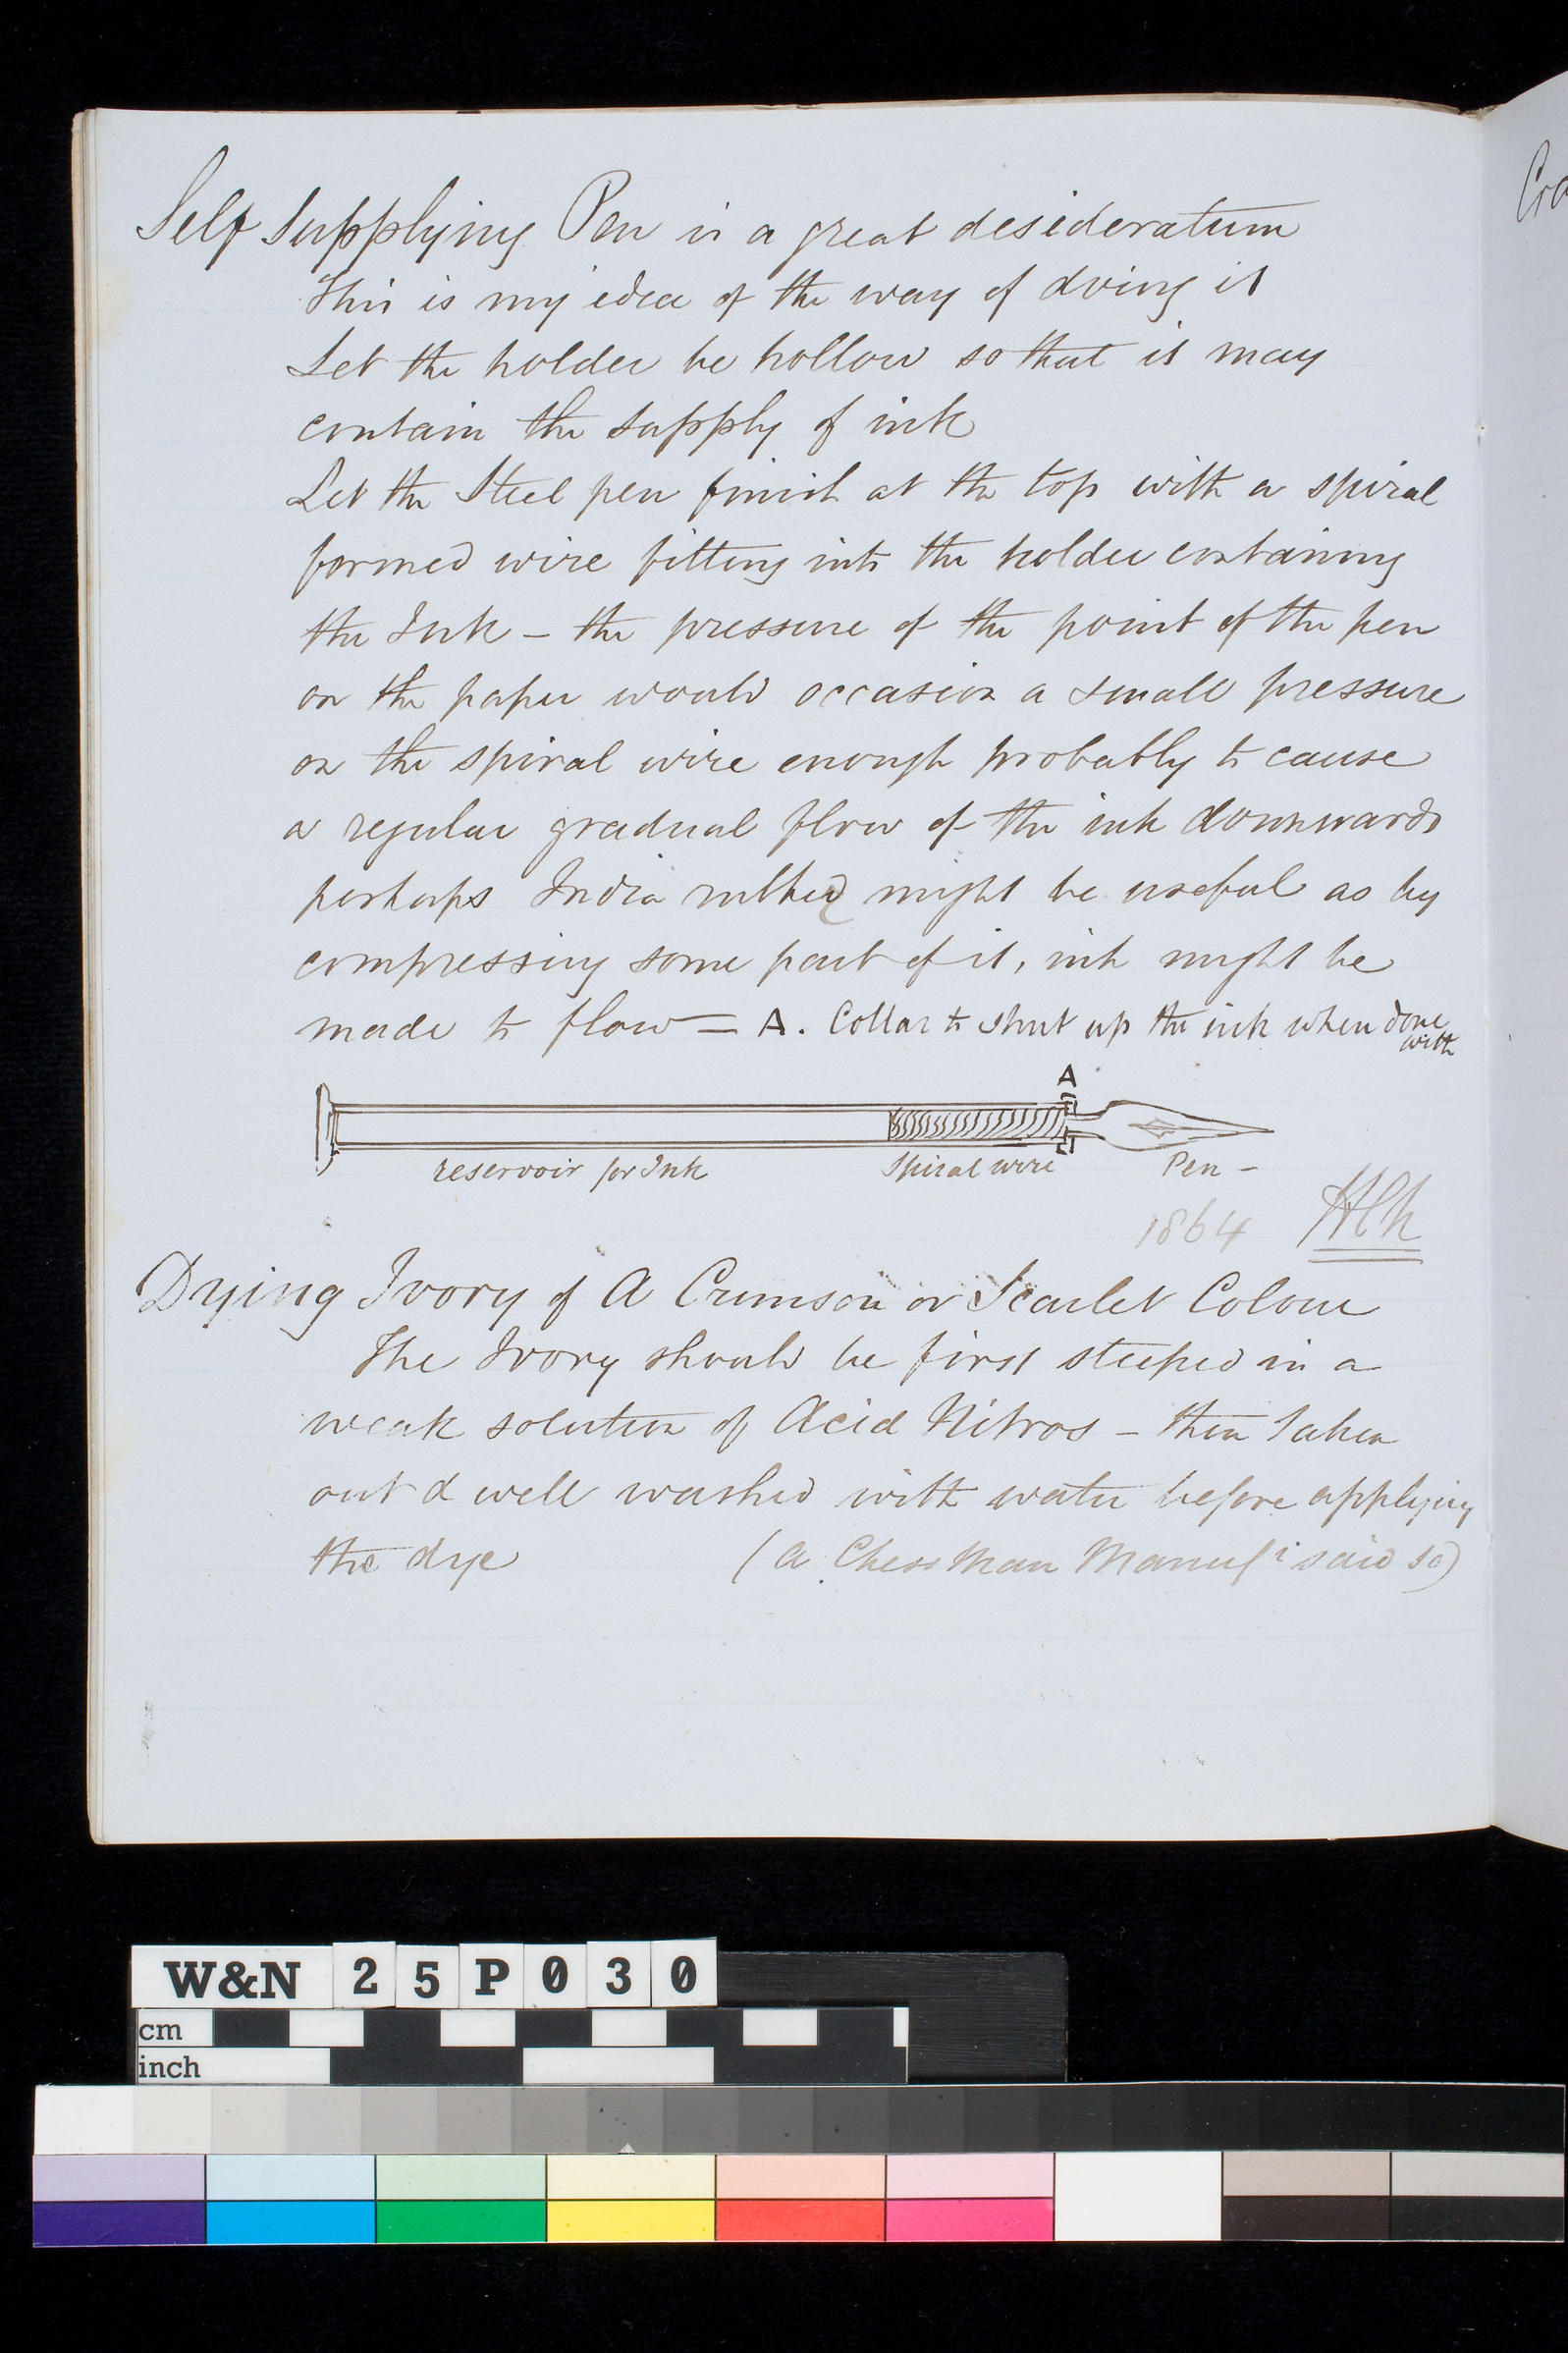 Self Supplying Pen is a great desideratum
This is my idea of the way of doing it
Let the holder be hollow so that it may
contain the supply of ink
Let the Steel pen finish at the top with a spiral
formed wire fitting into the holder containing
the Ink – the pressure of the point of the pen
on the paper would occasion a small pressure
on the spiral wire enough probably to cause
a regular gradual flow of the ink downwards
perhaps India rubber might be useful as by
compressing some part of it, ink might be
made to flow = A. Collar to shut up the ink when done
with
A
reservoir for Ink Spiral wire Pen –
1864
Dying Ivory of A Crimson or Scarlet Colour
The Ivory should be first steeped in a
weak solution of Acid Nitros – then taken
out & well washed with water before applying
the dye (A Chess Man Manufr said so)
W&N 25P030
cm
inch